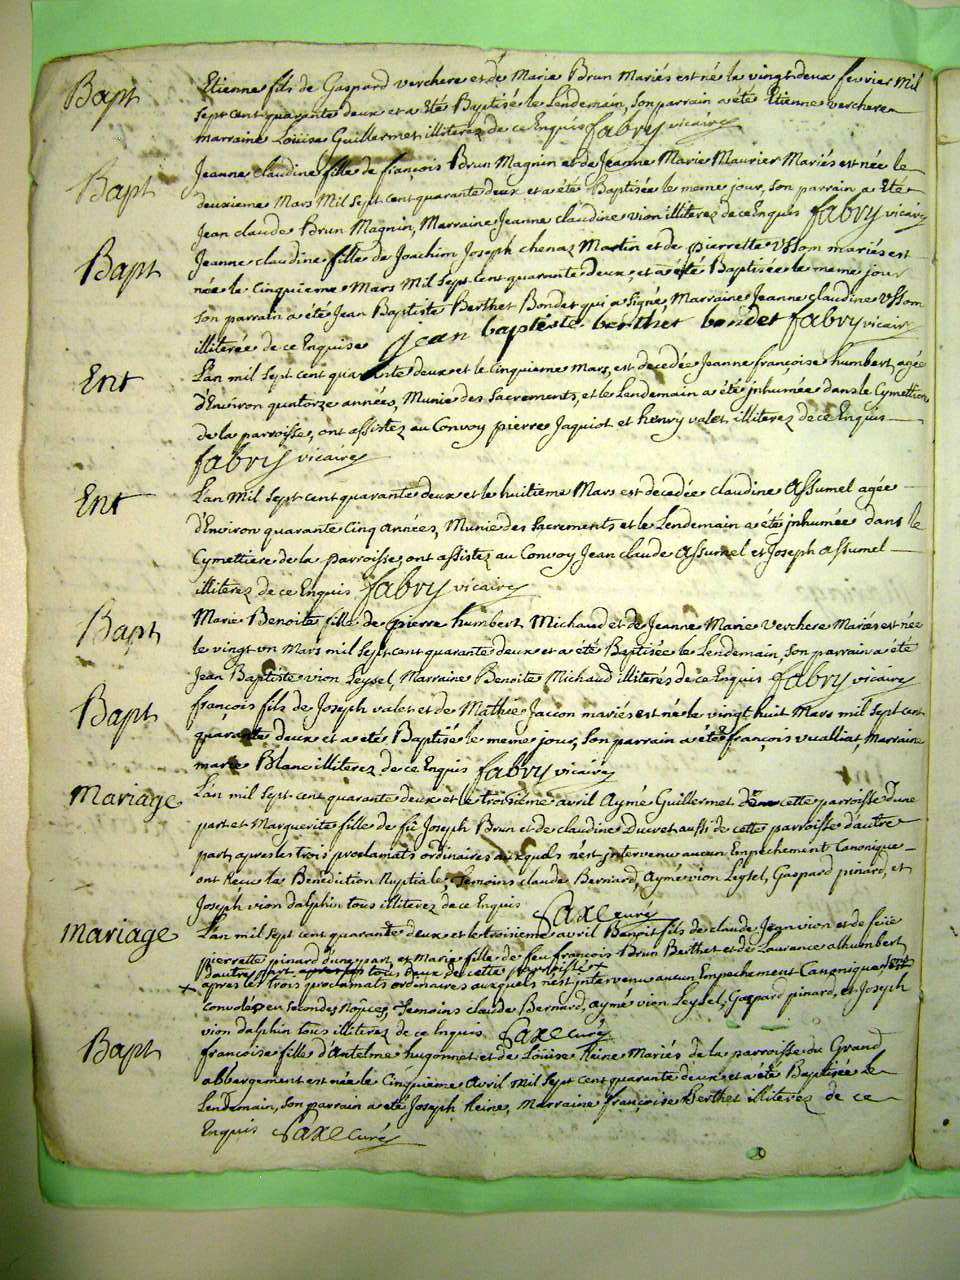 Bapt Etienne fils de Gaspard verchere et de Marie Brun Mariés est né le vingt deux fevrier mil
sept cent quarante deux et a été Baptisé le Lendemain, son parrain a été Etienne verchere
marraine Louise Guillermet illiterez de ce Enquis fabry vicaire
Bapt Jeanne claudine fille de françois Brun Magnin et de Jeanne Marie Maurier Mariés est née le
deuxieme Mars Mil sept cent quarante deux et a été Baptisée le meme jour, son parrain a été
Jean claude Brun Magnin, Marraine Jeanne claudine vion illiterez de ce Enquis fabry vicaire
Bapt Jeanne claudine fille de Joachim Joseph chenaz Martin et de pierrette Usson mariés est
née le Cinquieme Mars Mil sept cent quarante deux, et a été Baptisée le meme jour
son parrain a été Jean Baptiste Berthet Bondet qui a signé, Marraine Jeanne claudine Usson
illiterée de ce Enquise jean baptéste berthet bondet fabry vicaire
Ent L'an mil sept cent quarante deux et le Cinquieme Mars, est decedée Jeanne françoise humbert, agée
d'Environ quatorze années, Munie des Sacrements, et le Lendemain a été jnhumée dans le Cymettiere
de la parroisse, ont assistez au Convoy pierre Jaquiot et henry valet illiterez de ce Enquis
fabry vicaire
Ent L'an Mil sept cent quarante deux et le huitieme Mars est decedée claudine Assumel agée
d'Environ quarante Cinq années, Munie des Sacrements et le Lendemain a été jnhumée dans le
Cymettiere de la parroisse, ont assistez au Convoy Jean claude Assumel et Joseph Assumel
illiterez de ce Enquis fabry vicaire
Bapt Marie Benoite fille de pierre humbert Michaud et de Jeanne Marie Verchere Mariés est née
le vingt un Mars mil sept cent quarante deux et a été Baptisée le Lendemain, son parrain a été
Jean Baptiste vion Leysel, Marraine Benoite Michaud illiterés de ce Enquis fabry vicaire
Bapt françois fils de Joseph valet et de Mathie Jaccon mariés est né le vingt huit Mars mil sept cent
quarante deux et a été Baptisé le meme jour, son parrain a été françois vuaillat, Marraine
marie Blanc illiterez de ce Enquis fabry vicaire
Mariage L'an mil sept cent quarante deux et le troisiéme avril Aymé Guillermet de cette parroisse d'une
part et Marguerite fille de fû Joseph Brun et de claudine Ducret aussi de cette parroisse d'autre
part, apres les trois proclamats ordinaires auxquels n'est jntervenu aucun Empechement Canonique
ont Recu la Benediction Nuptiale, temoins claude Bernard, Aymé vion Leysel, Gaspard pinard, et
Joseph vion dalphin tous illiterez de ce Enquis Saxe curé
Mariage L'an mil sept cent quarante deux et le troisieme avril Benoit fils de claude Jean vion et de feüe
pierrette pinard d'une part, et Marie fille de feu françois Brun Berthet et de Laurance alhumbert
d'autre part tous deux de cette parroisse +
+ apres les trois proclamats ordinaires auxquels n'est jntervenu aucun Empechement Canonique sont
convolés en secondes Nopces, temoins claude Bernard, aymé vion Leysel, Gaspard pinard, et Joseph
vion dalphin tous illiterez de ce Enquis Saxe Curé
Bapt françoise fille d'Antelme hugonnet et de Loüise Reine Mariés de la parroisse du Grand
abbergement est née le Cinquieme Avril Mil sept cent quarante deux et a été Baptisée le
LenDemain, son parrain a été Joseph Reine, Marraine françoise Berthet illiterez de ce
Enquis Saxe Curé